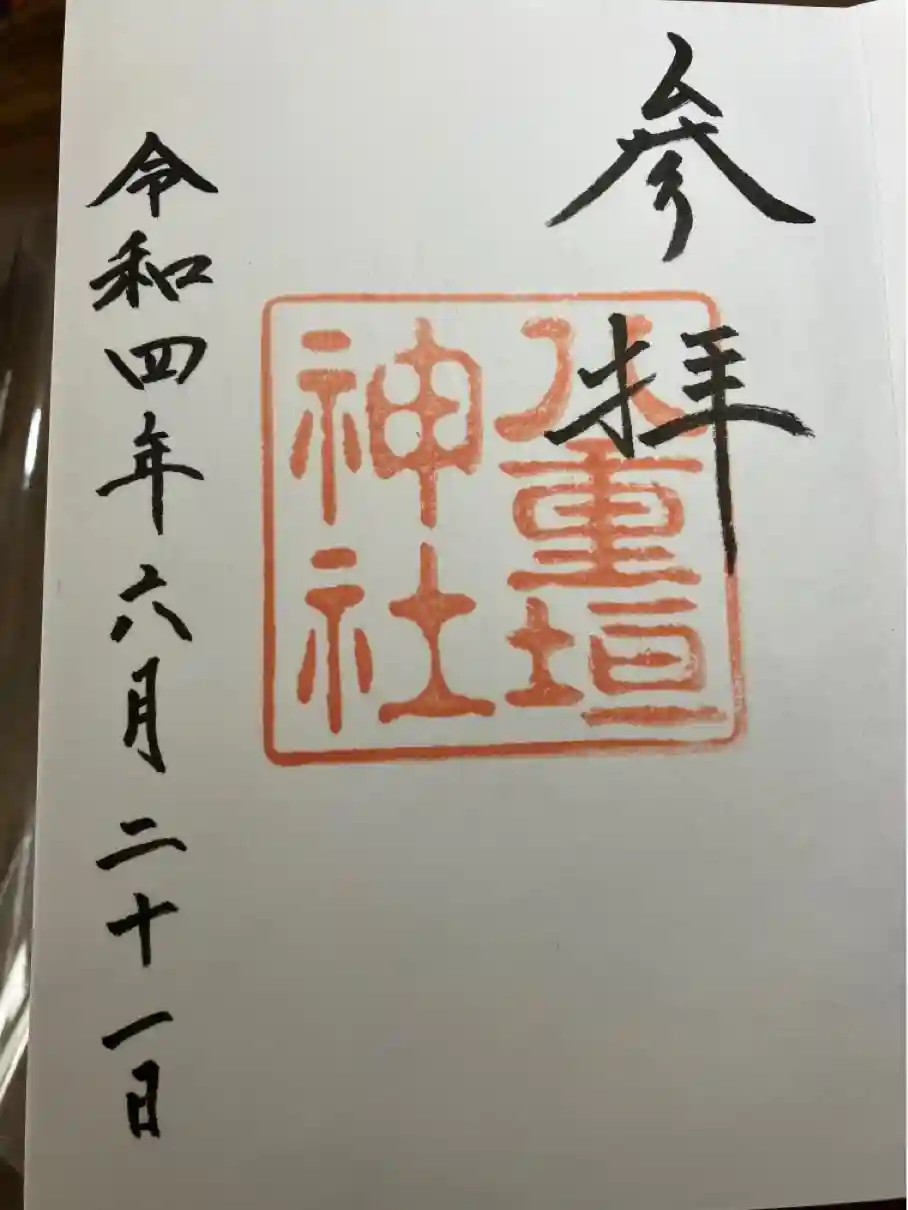 参拝
八重垣
神社
令和四年六月二十一日